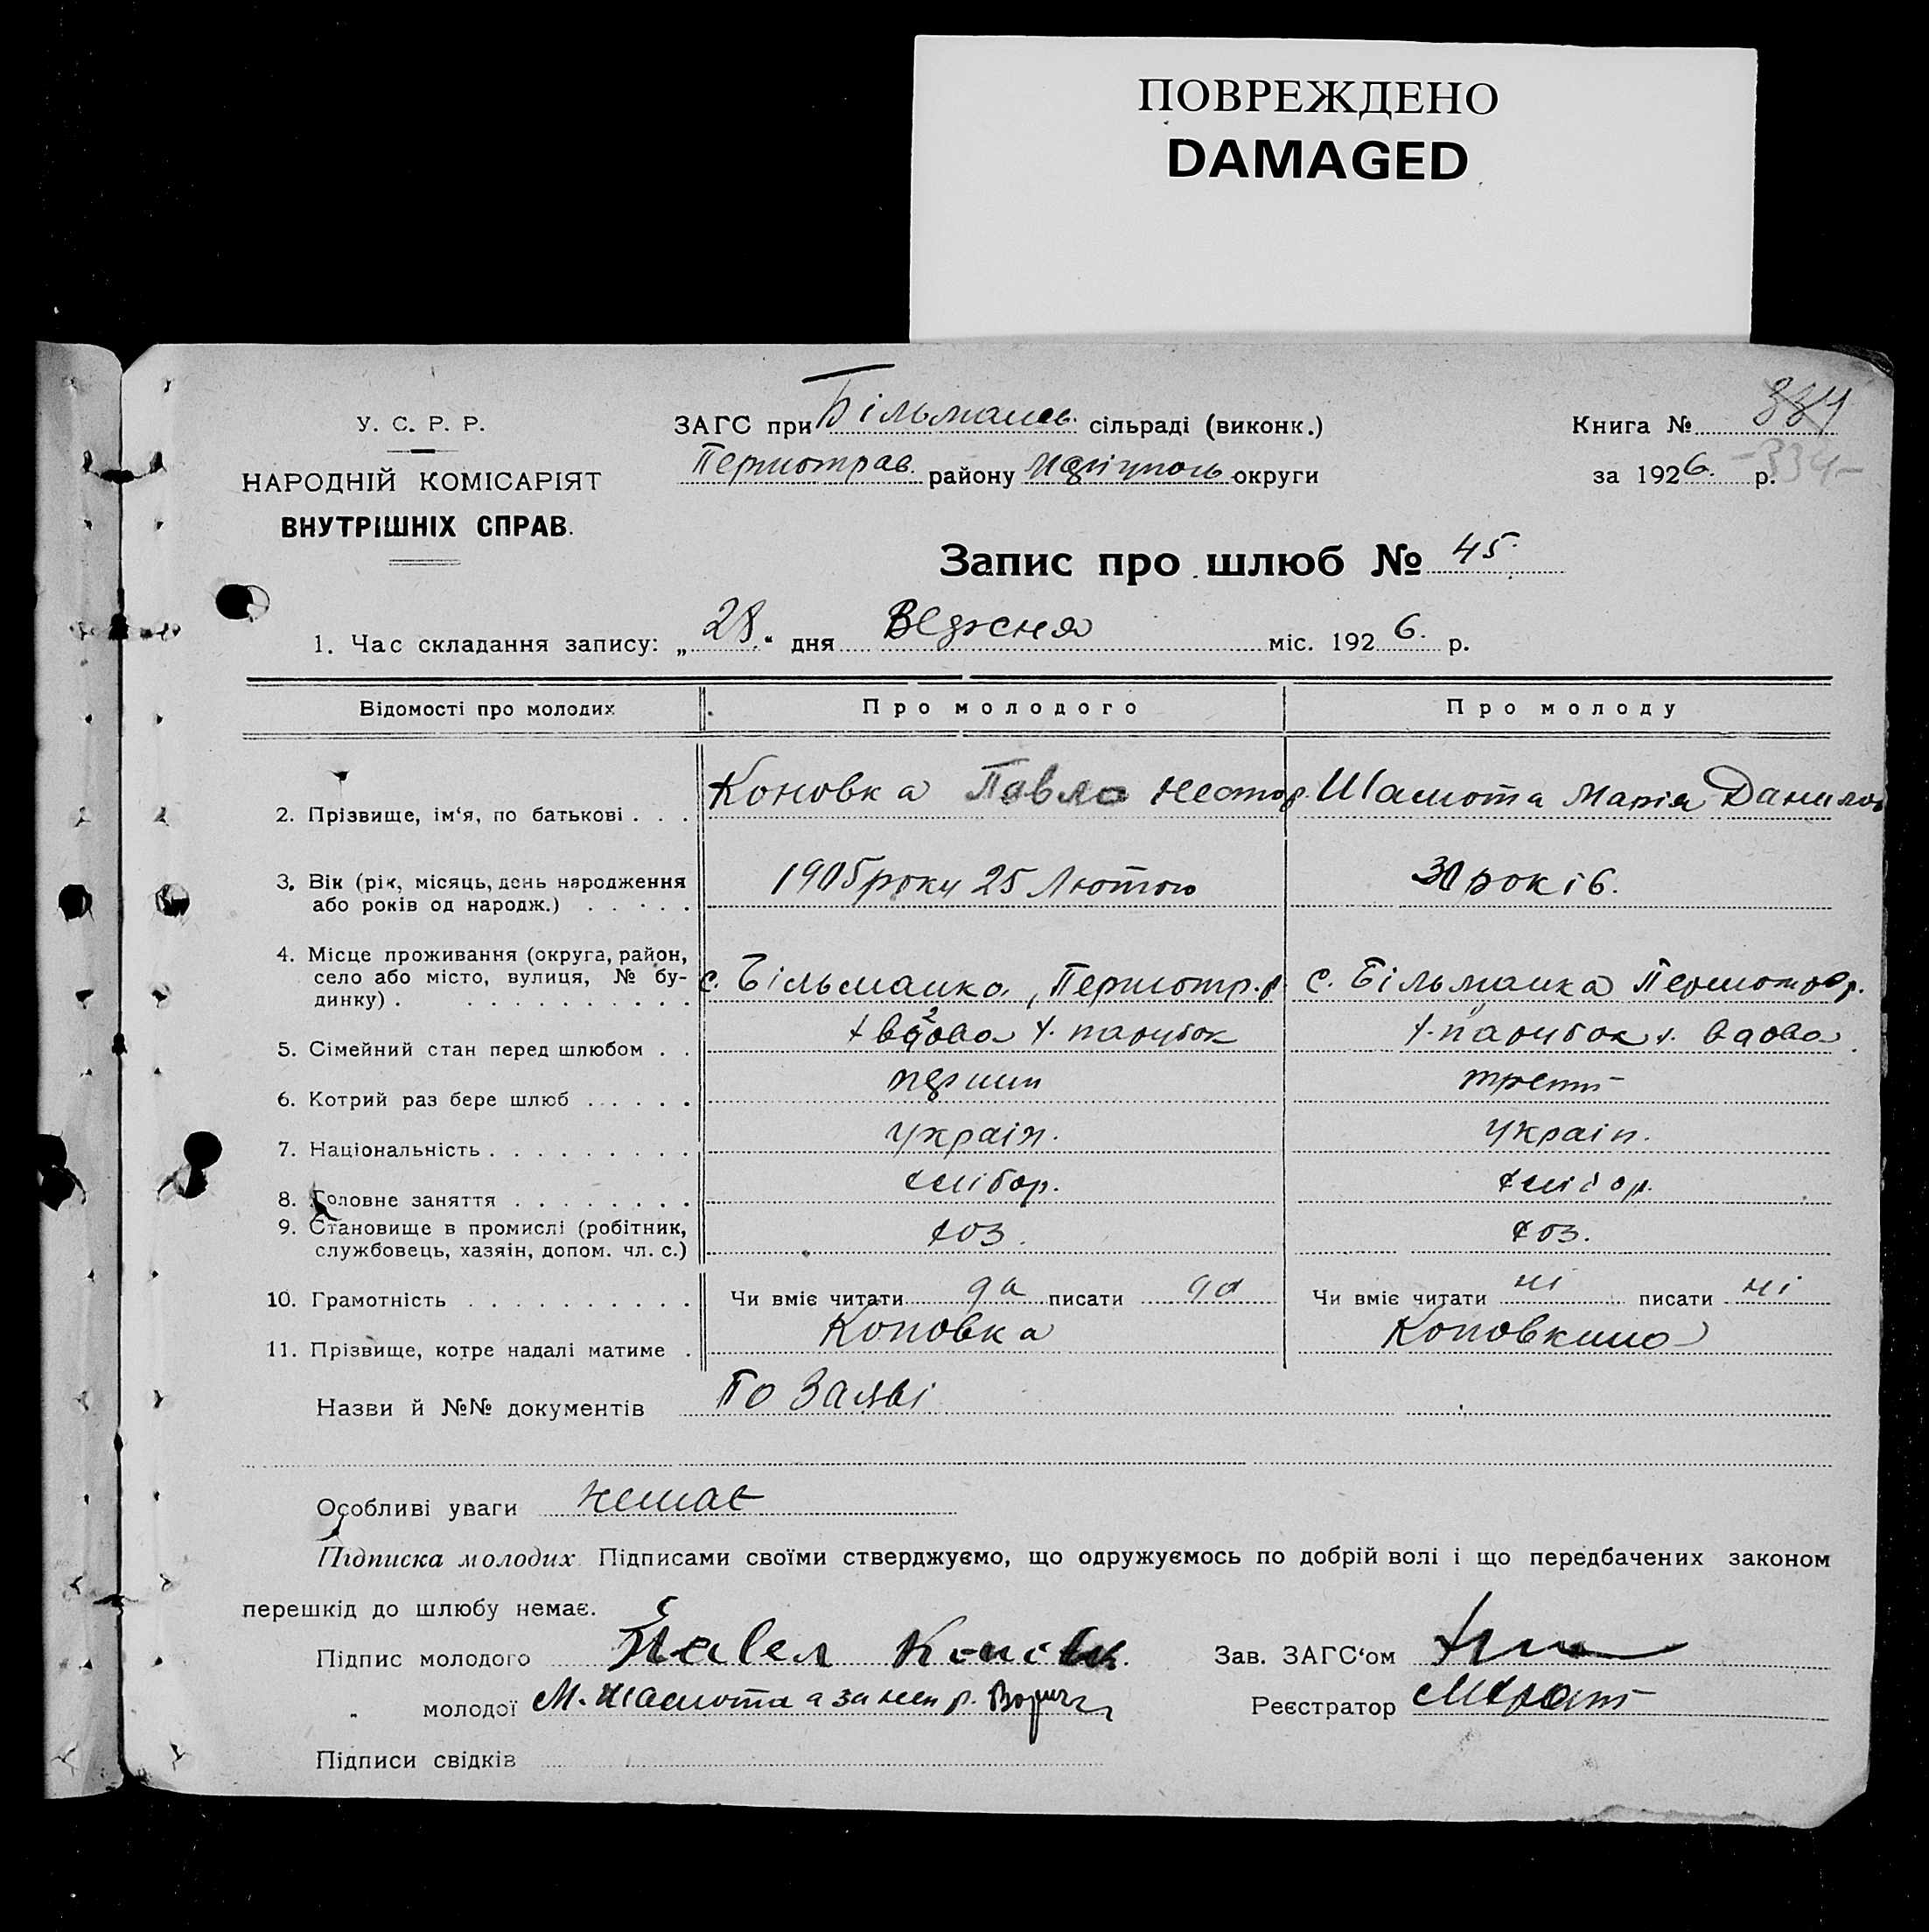 ПОВРЕЖДЕНО
DAMAGED
У. С. Р. Р.
НАРОДНІЙ КОМІСАРІЯТ
ВНУТРІШНІХ СПРАВ.
ЗАГС при Більмансь. сільраді (виконк.)
Першотрав. району Маріуполь округи
Книга №
за 1926. р. -334-
Запис про шлюб № 45.
1. Час складання запису: „28." дня Вересня міс. 1926. р.
Відомості про молодих Про молодого Про молоду
2. Прізвище, ім'я, по батькові . . . Коновка Павло Нестор. Шамота Марія Данилов
3. Вік (рік, місяць, день народження
або років од народж.) . . . . . 1905 року 25 Лютого 30 років.
4. Місце проживання (округа, район,
село або місто, вулиця, № бу-
динку) . . . . . . . . . . . с. Більманка, Першотр. р с. Більманка Першотр.
5. Сімейний стан перед шлюбом . . вдова парубок парубок вдова
6. Котрий раз бере шлюб . . . . . . перший третій
7. Національність . . . . . . . . . україн. україн.
8. Головне заняття . . . . . . . . хлібор. хлібор.
9. Становище в промислі (робітник,
службовець, хазяїн, допом. чл. с.) хоз. хоз.
10. Грамотність . . . . . . . . . . Чи вміє читати да писати да Чи вміє читати ні писати ні
11. Прізвище, котре надалі матиме . Коновка Коновкина
Назви й №№ документів По Заяві
Особливі уваги немає
Підписка молодих. Підписами своїми стверджуємо, що одружуємось по добрій волі і що передбачених законом
перешкід до шлюбу немає.
Підпис молодого Павел Зав. ЗАГС'ом
„ молодої М. Шамота а за нея р. Реєстратор
Підписи свідків